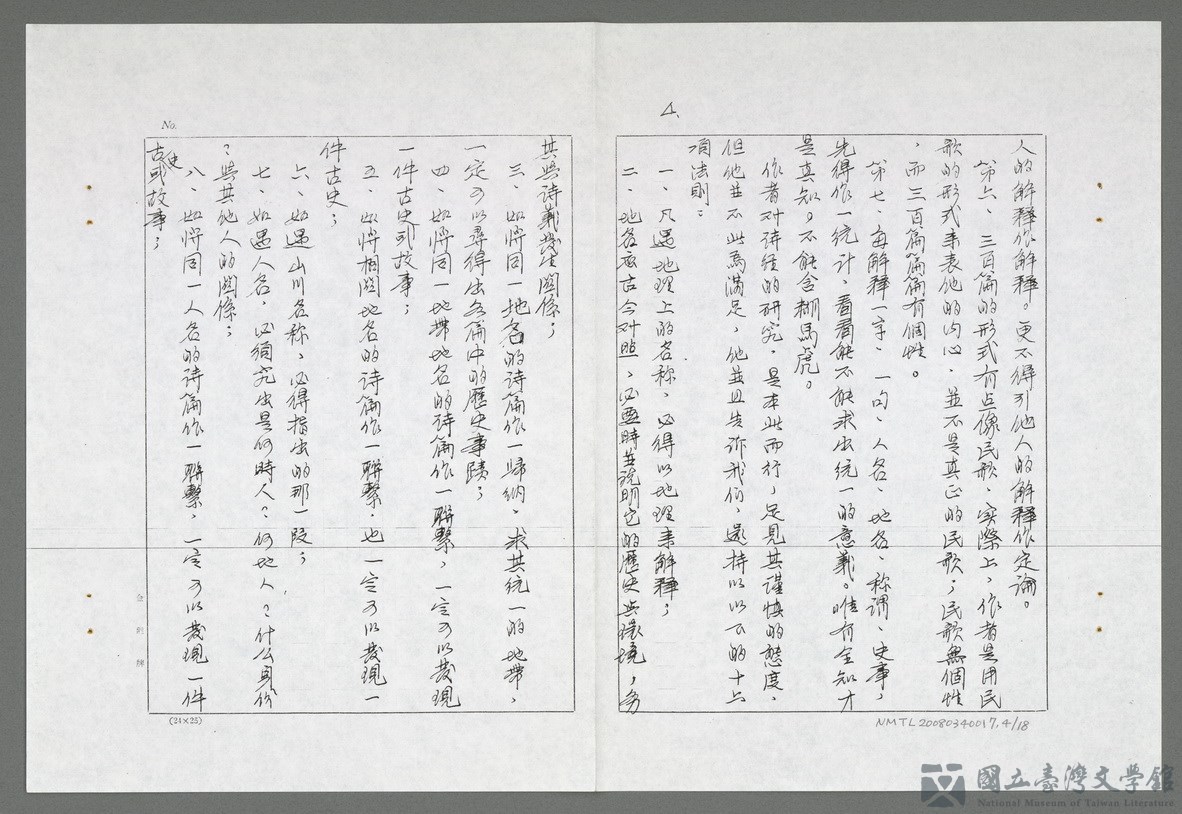 4.
人的解釋作解釋。更不得引他人的解釋作定論。
第六、三百篇的形式有点像民歌、实際上，作者是用民
歌的形式来表他的内心、並不是真正的民歌；民歌無個性
，而三百篇篇篇有個性。
第七、每解釋一字、一句、人名、地名、称谓、史事，
先得作一统计，看看能不能求出统一的意義。唯有全知才
是真知，不能含糊馬虎。
作者对诗经的研究，是本此而行，足見其謹慎的態度，
但他並不此為满足，他並且告诉我们，還持以以下的十六
項法則：
一、凡遇地理上的名称，必得以地理来解釋；
二、地名要古今对照、必要時並说明它的歷史與環境，务
No.
其與诗義發生関係；
三、如将同一地名的诗篇作一歸纳，求其统一的地带，
一定可以尋得出各篇中的歷史事蹟；
四、如将同一地带地名的诗篇作一聯繫，一定可以發現
一件古史或故事；
五、如将相関地名的诗篇作一聯繫，也一定可以發現一
件古史；
六、如遇山川名称，必得指出的那一段；
七、如遇人名，必須究出是何時人？何地人？什么身份
？與其他人的関係；
八、如将同一人名的诗篇作一聯繫，一定可以發現一件
古史或故事；
金剛牌
(24×25)
NMTL20080340017, 4/18
國立臺灣文學館
National Museum of Taiwan Literature